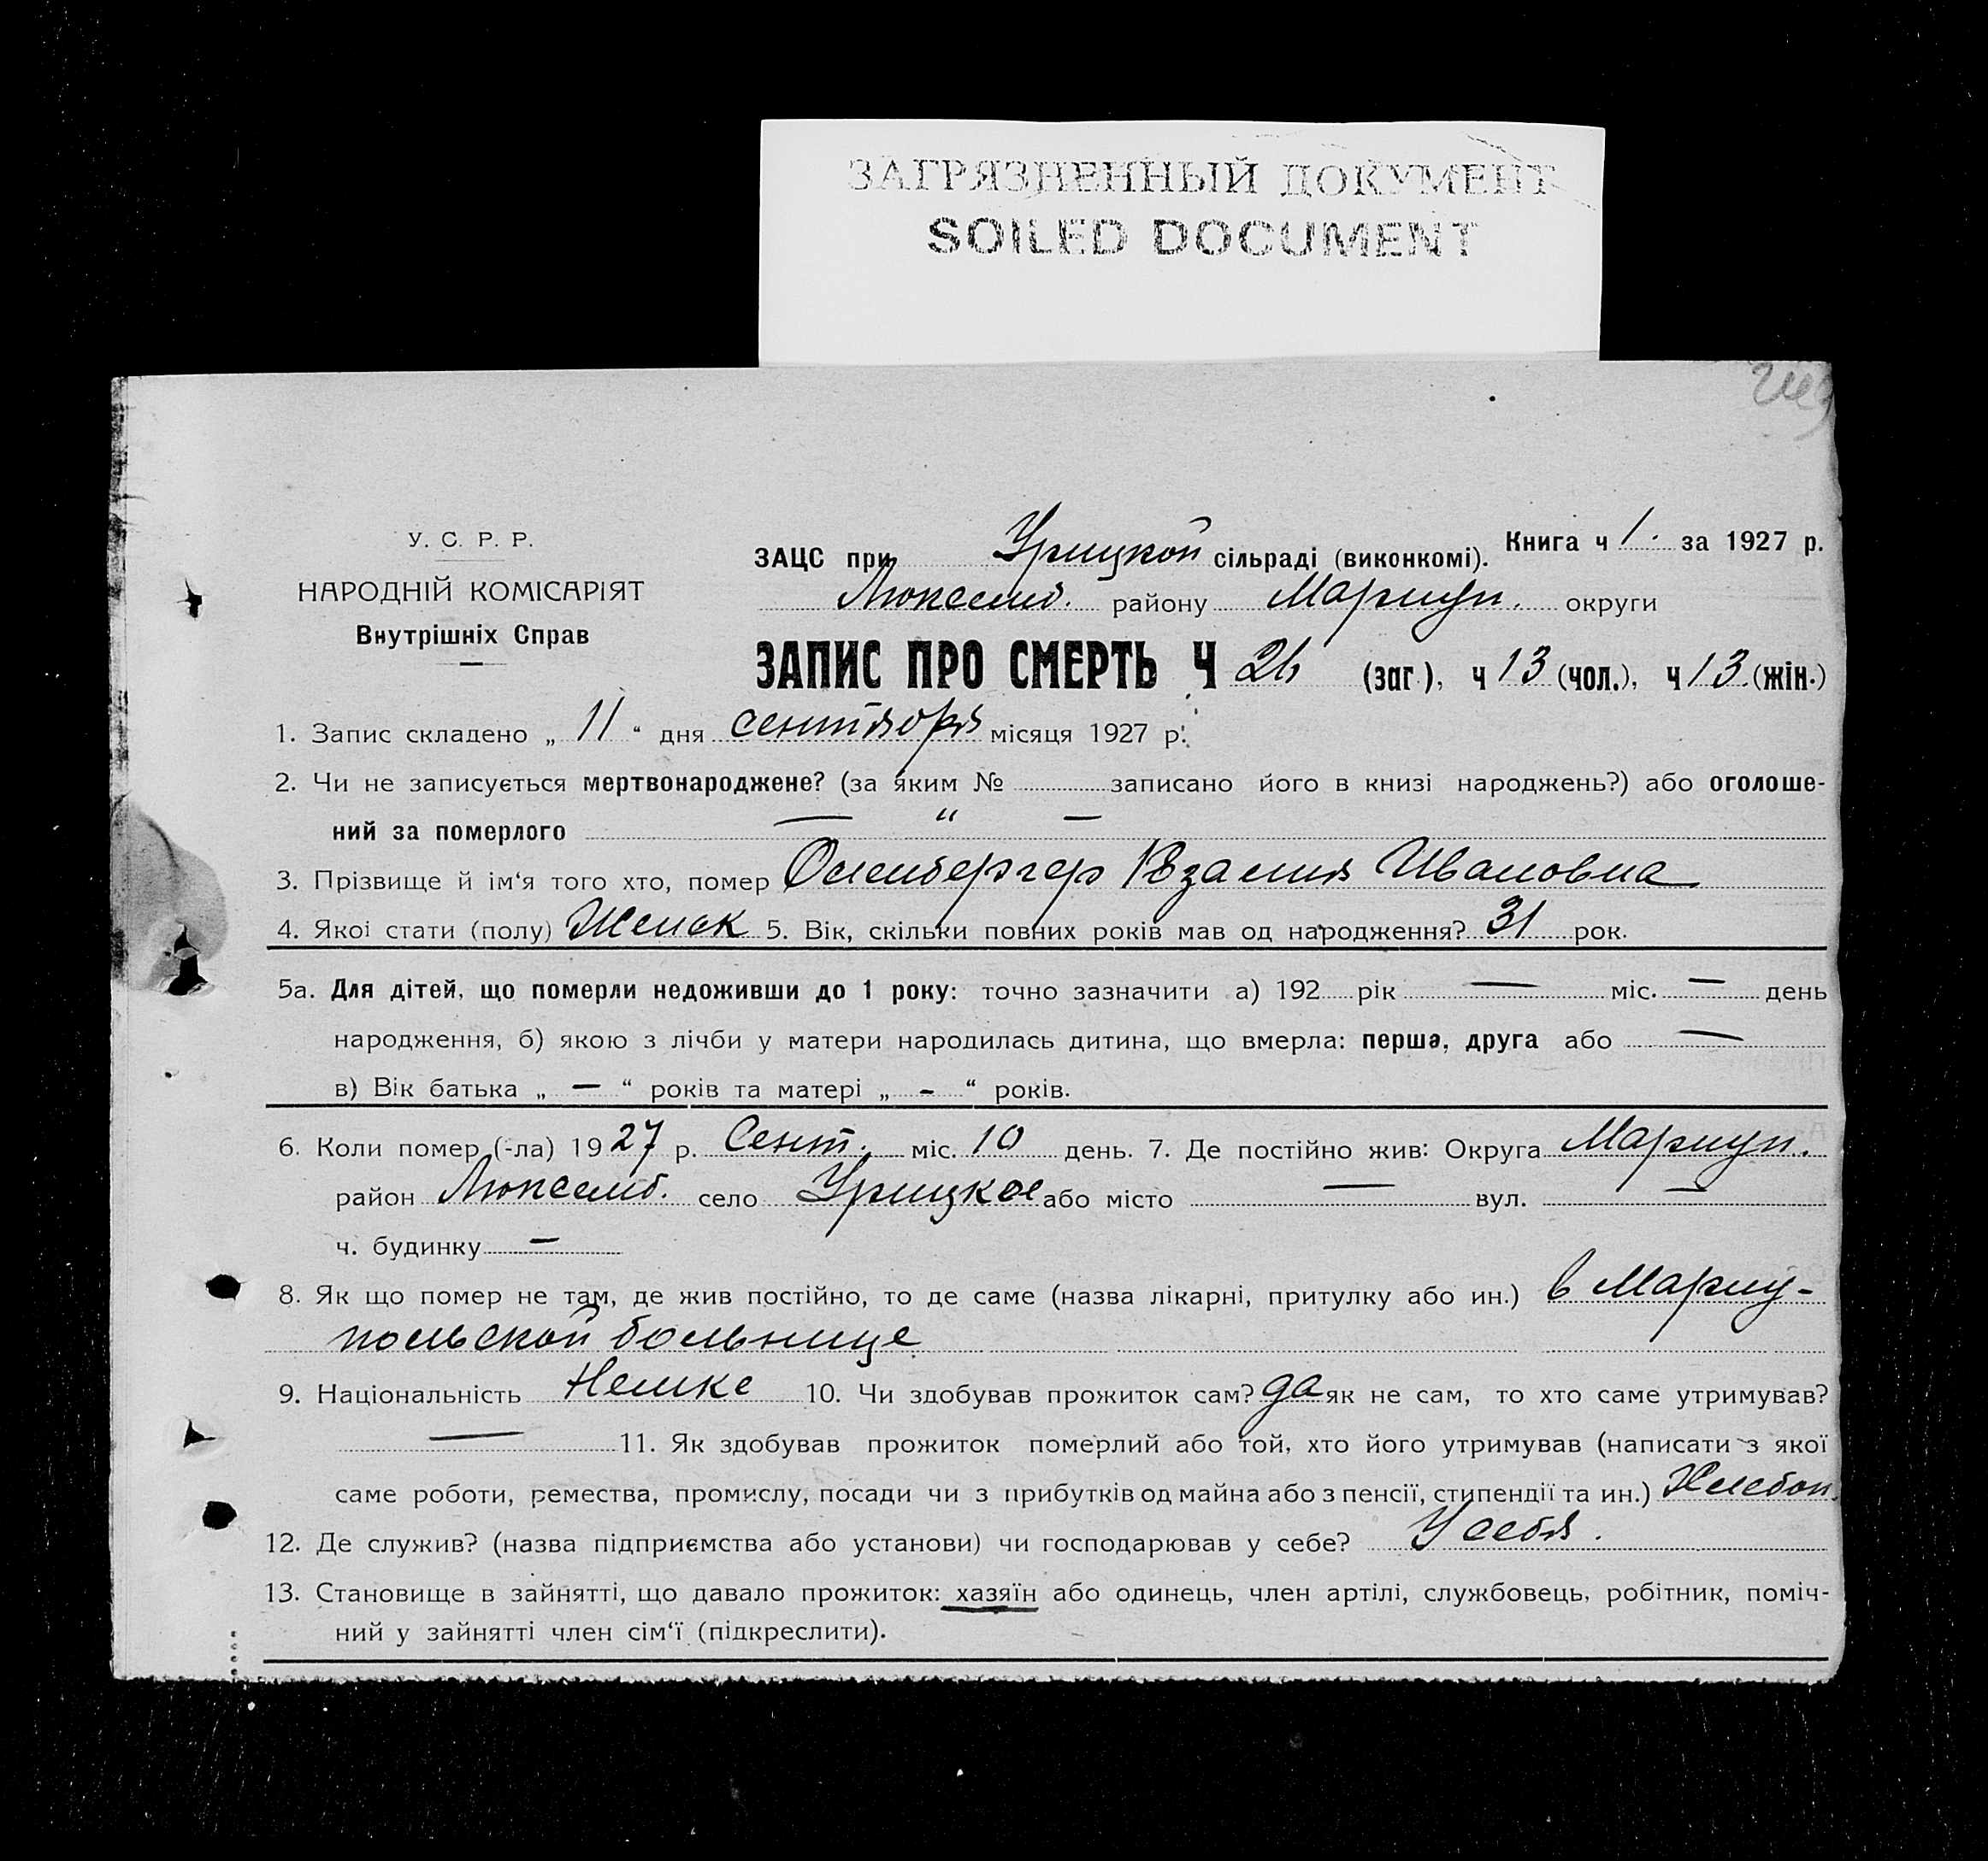 ЗАГРЯЗНЕННЫЙ ДОКУМЕНТ
SOILED DOCUMENT
У. С. Р. Р.
НАРОДНІЙ КОМІСАРІЯТ
Внутрішніх Справ
ЗАЦС при Урицкой сільраді (виконкомі). Книга ч 1. за 1927 р.
Люксемб. району Мариуп. округи
ЗАПИС ПРО СМЕРТЬ Ч 26 (заг.), ч 13 (чол.), ч 13. (жін.)
1. Запис складено „ 11 “ дня сентября місяця 1927 р.
2. Чи не записується мертвонароджене? (за яким № записано його в книзі народжень?) або оголоше-
ний за померлого — “ —
3. Прізвище й ім‘я того хто, помер Ивановна
4. Якої стати (полу) Женск 5. Вік, скільки повних років мав од народження? 31 рок.
5а. Для дітей, що померли недоживши до 1 року: точно зазначити а) 192 рік — міс. — день
народження, б) якою з лічби у матери народилась дитина, що вмерла: перша, друга або —
в) Вік батька „ — “ років та матері „ - “ років.
6. Коли помер (-ла) 1927 р. Сент. міс. 10 день. 7. Де постійно жив: Округа Мариуп.
район Люксемб. село Урицкое або місто — вул. —
ч. будинку —
8. Як що помер не там, де жив постійно, то де саме (назва лікарні, притулку або ин.) в Мариу-
польской больнице
9. Національність Немке 10. Чи здобував прожиток сам? да як не сам, то хто саме утримував?
— 11. Як здобував прожиток померлий або той, хто його утримував (написати з якої
саме роботи, ремества, промислу, посади чи з прибутків од майна або з пенсії, стипендії та ин.) Хлебоп.
12. Де служив? (назва підприємства або установи) чи господарював у себе? У себя.
13. Становище в зайнятті, що давало прожиток: хазяїн або одинець, член артілі, службовець, робітник, поміч-
ний у зайнятті член сім‘ї (підкреслити).